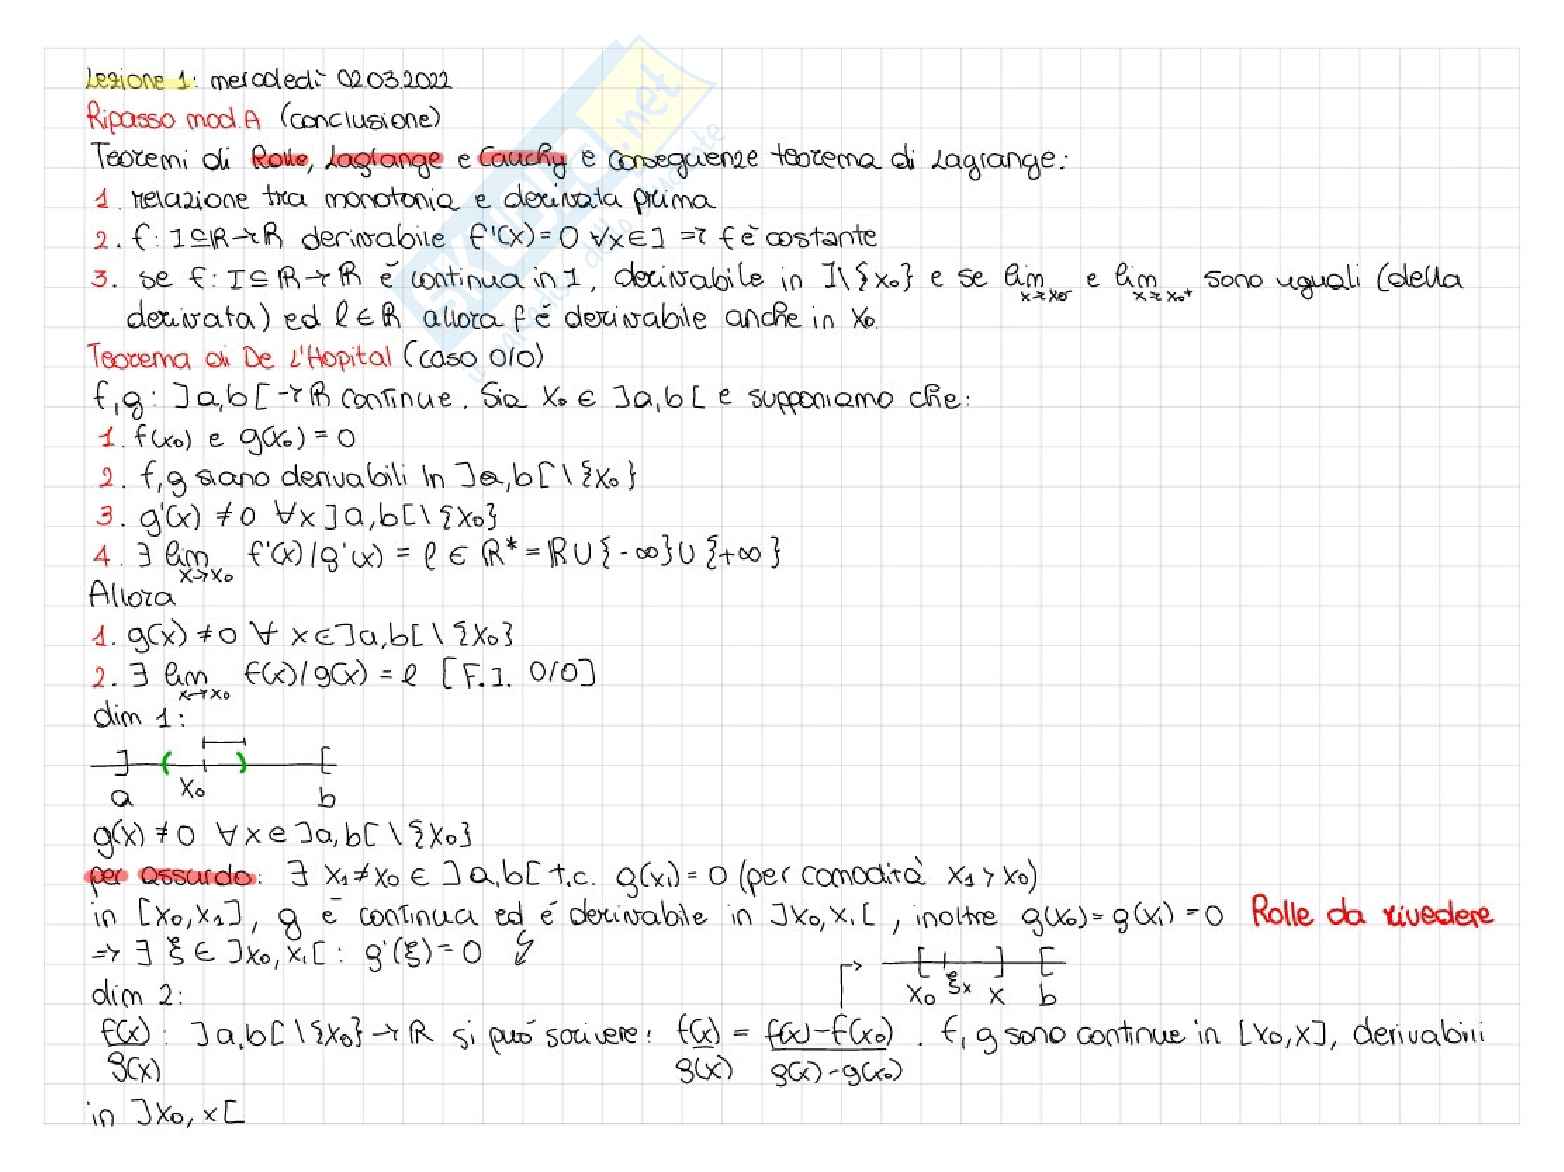 Lezione 1: mercoledì 02.03.2022
Ripasso mod.A (conclusione)
Teoremi di Rolle, Lagrange e Cauchy e conseguenze teorema di Lagrange:
1. relazione tra monotonia e derivata prima
2. f: I⊆R→R derivabile f'(x)=0 ∀x∈I => f è costante
3. se f: I⊆R→R è continua in I, derivabile in I\{x₀} e se lim x→x₀⁻ e lim x→x₀⁺ sono uguali (della
derivata) ed l∈R allora f è derivabile anche in x₀
Teorema di De L'Hopital (caso 0/0)
f,g: ]a,b[→R continue. Sia x₀ ∈ ]a,b[ e supponiamo che:
1. f(x₀) e g(x₀) = 0
2. f,g siano derivabili in ]a,b[\{x₀}
3. g'(x) ≠0 ∀x ]a,b[\{x₀}
4. ∃ lim x→x₀ f'(x)/g'(x) = l ∈ R* = R∪{-∞}∪{+∞}
Allora
1. g(x) ≠0 ∀ x∈]a,b[\{x₀}
2. ∃ lim x→x₀ f(x)/g(x) = l [F.I. 0/0]
dim 1:
] ( ) [
a x₀ b
g(x) ≠ 0 ∀x∈]a,b[\{x₀}
per assurdo: ∃ x₁≠x₀ ∈ ]a,b[ t.c. g(x₁)=0 (per comodità x₁>x₀)
in [x₀,x₁], g è continua ed è derivabile in ]x₀,x₁[, inoltre g(x₀)=g(x₁)=0 Rolle da rivedere
=> ∃ ξ ∈ ]x₀,x₁[: g'(ξ)=0 ↯
[ ] [
x₀ ξx x b
dim 2:
f(x)/g(x) : ]a,b[\{x₀}→R si può scrivere: f(x)/g(x) = f(x)-f(x₀)/g(x)-g(x₀) . f,g sono continue in [x₀,x], derivabili
in ]x₀,x[